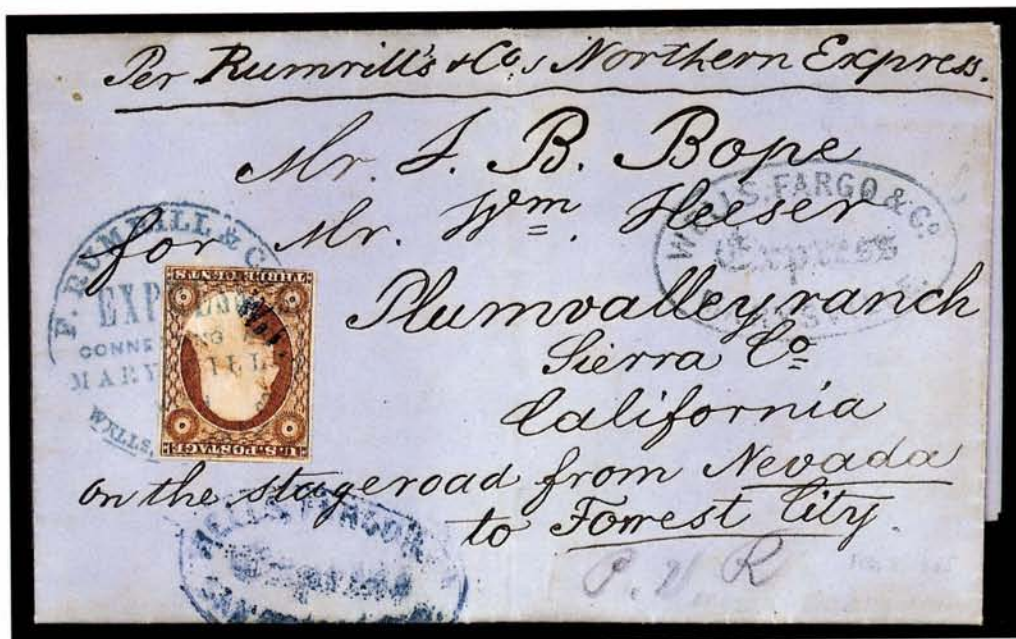 Per Rumrill's & Co's Northern Express.
Mr. F. B. Bope
for Mr. Wm. Heeser
Plumvalleyranch
Sierra Co
California
on the stageroad from Nevada
to Forrest City.
P. V. R
F. RUMRILL & C
EXP
CONNE NG
MARY ILL
WELLS.
WELLS, FARGO & Co
Express
WELLS, FARGO &
Express
THREE CENTS
U.S. POSTAGE